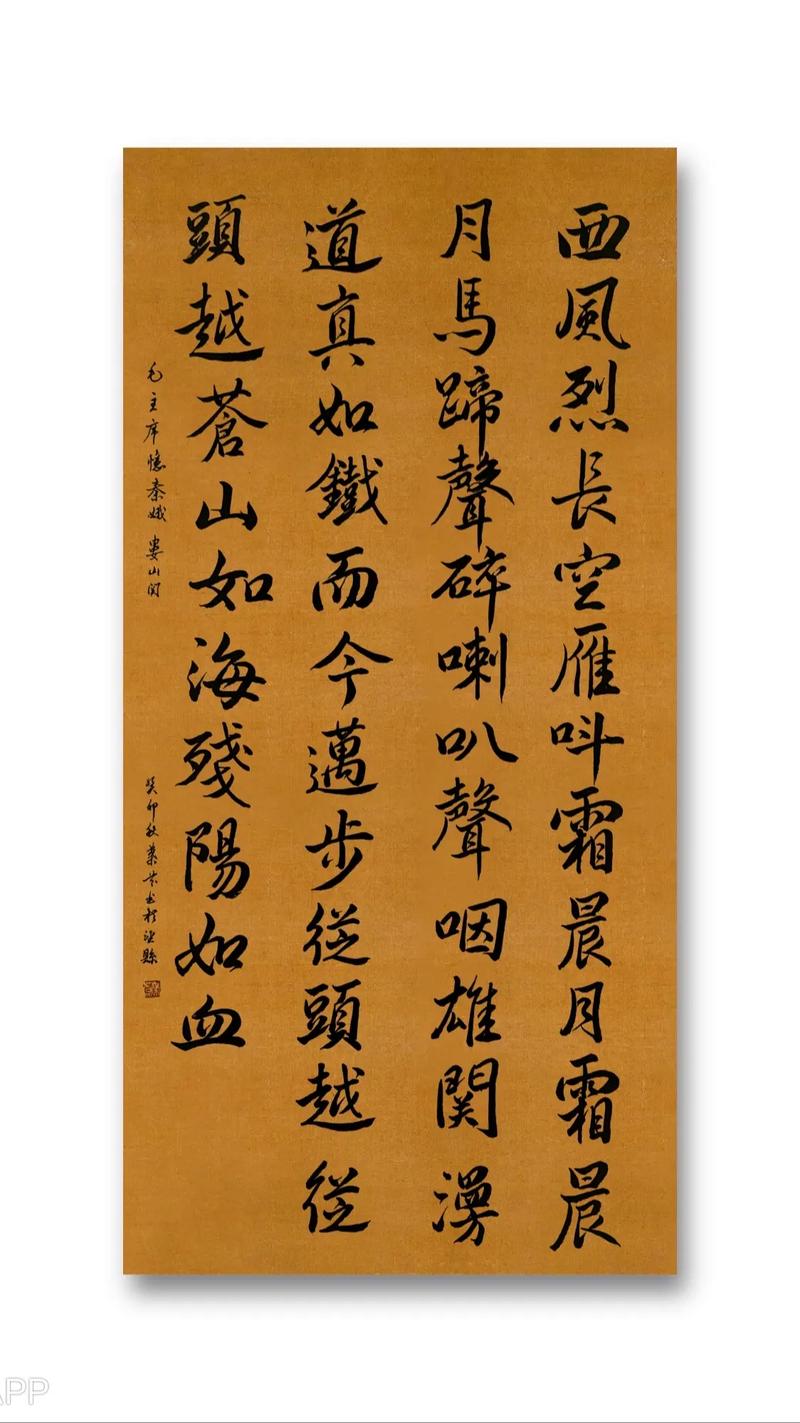 西風烈長空雁呌霜晨月霜晨
月馬蹄聲碎喇叭聲咽雄関漫
道真如鐵而今邁步従頭越従
頭越蒼山如海殘陽如血
毛主席憶秦娥 婁山関
癸卯秋葉书於縣
APP